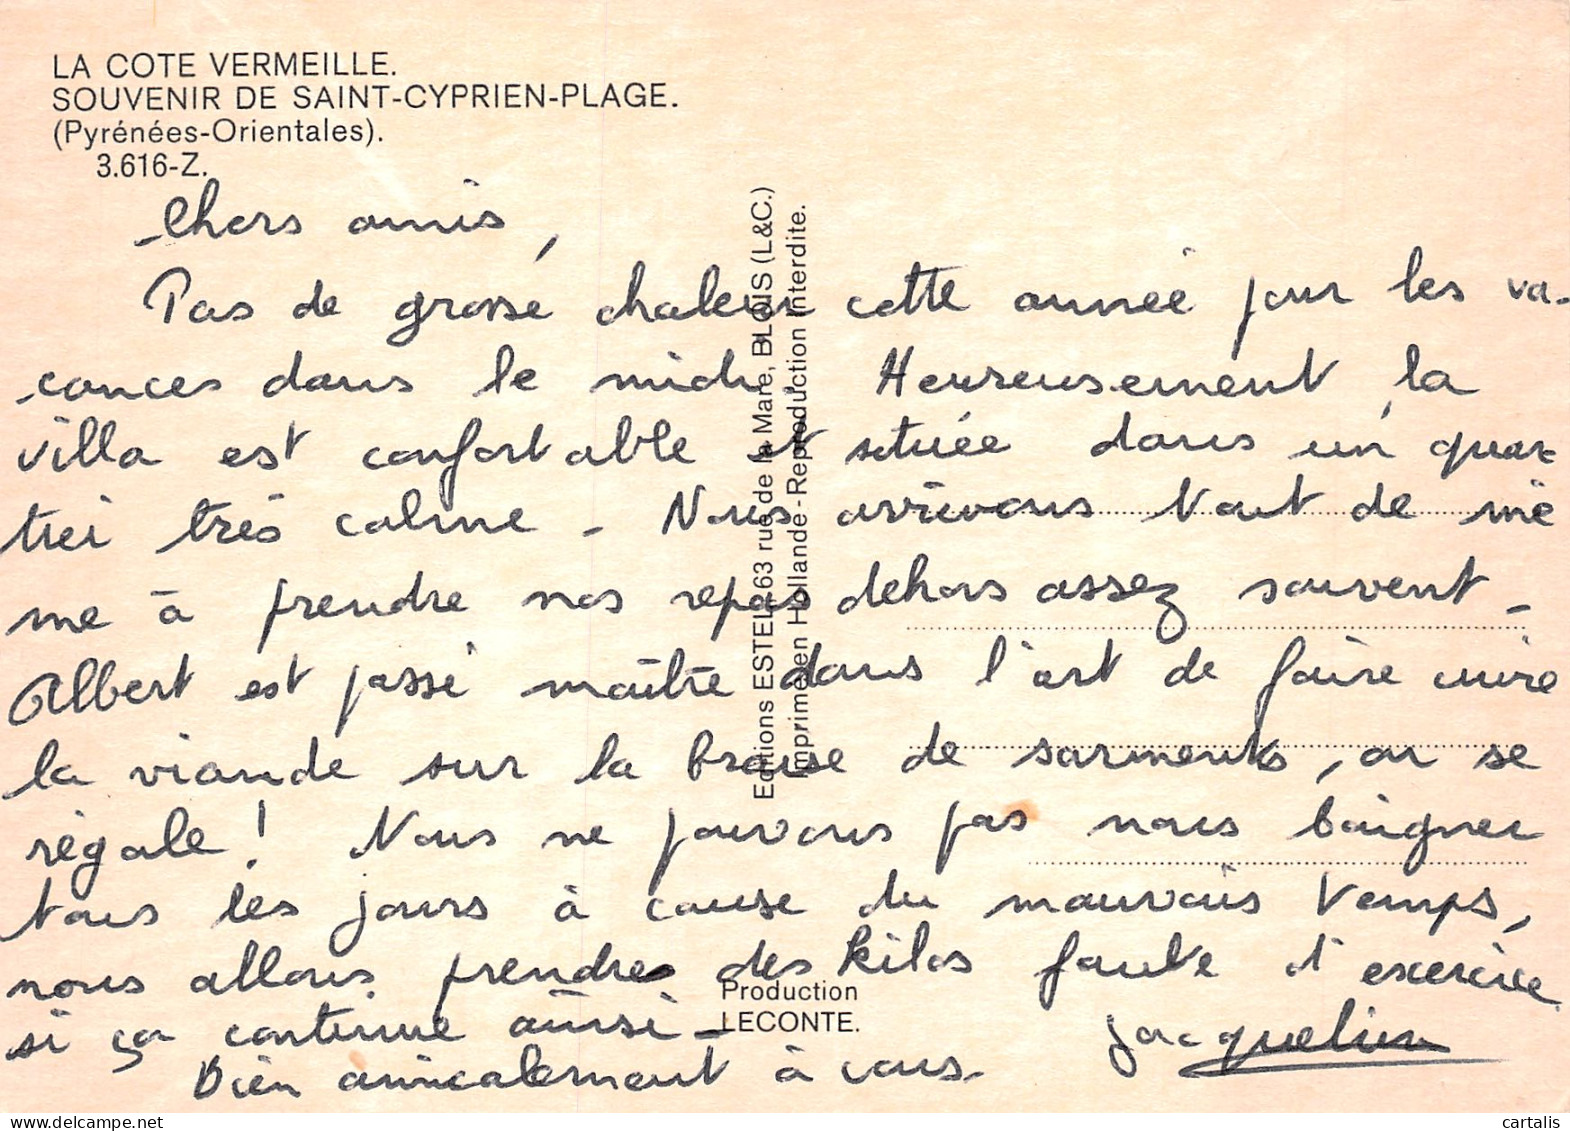 LA COTE VERMEILLE.
SOUVENIR DE SAINT-CYPRIEN-PLAGE.
(Pyrénées-Orientales).
3.616-Z.
Chers amis,
Pas de grosse chaleur cette année pour les va-
cances dans le midi. Heureusement, la
villa est confortable et située dans un quar-
tier très calme - Nous arrivons tout de mê
me à prendre nos repas dehors assez souvent -
Albert est passé maître dans l'art de faire cuire
la viande sur la braise de sarments, on se
régale ! Nous ne pouvons pas nous baigner
tous les jours à cause du mauvais temps,
nous allons prendre des kilos faute d'exercice
si ça continue ainsi -
Bien amicalement à vous.
Jacqueline
Editions ESTEL 63 rue de la Mare, BLOIS (L&C.)
Imprimé en Hollande - Reproduction Interdite.
Production
LECONTE.
www.delcampe.net
cartalis